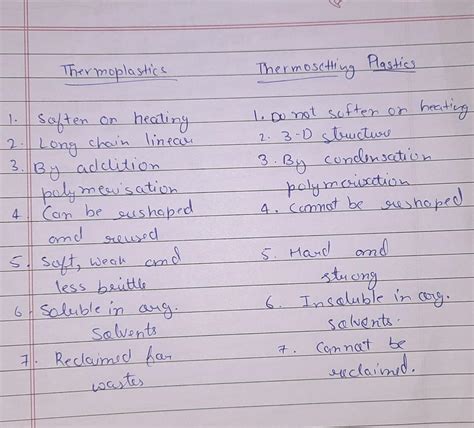 Thermoplastics
1. Soften on heating
2. Long chain linear
3. By addition
polymerisation
4. Can be reshaped
and reused
5. Soft, weak and
less brittle
6. Soluble in org.
solvents
7. Reclaimed for
wastes
Thermosetting Plastics
1. Do not soften on heating
2. 3-D structure
3. By condensation
polymerization
4. Cannot be reshaped
5. Hard and
strong
6. Insoluble in org.
solvents.
7. Cannot be
reclaimed.